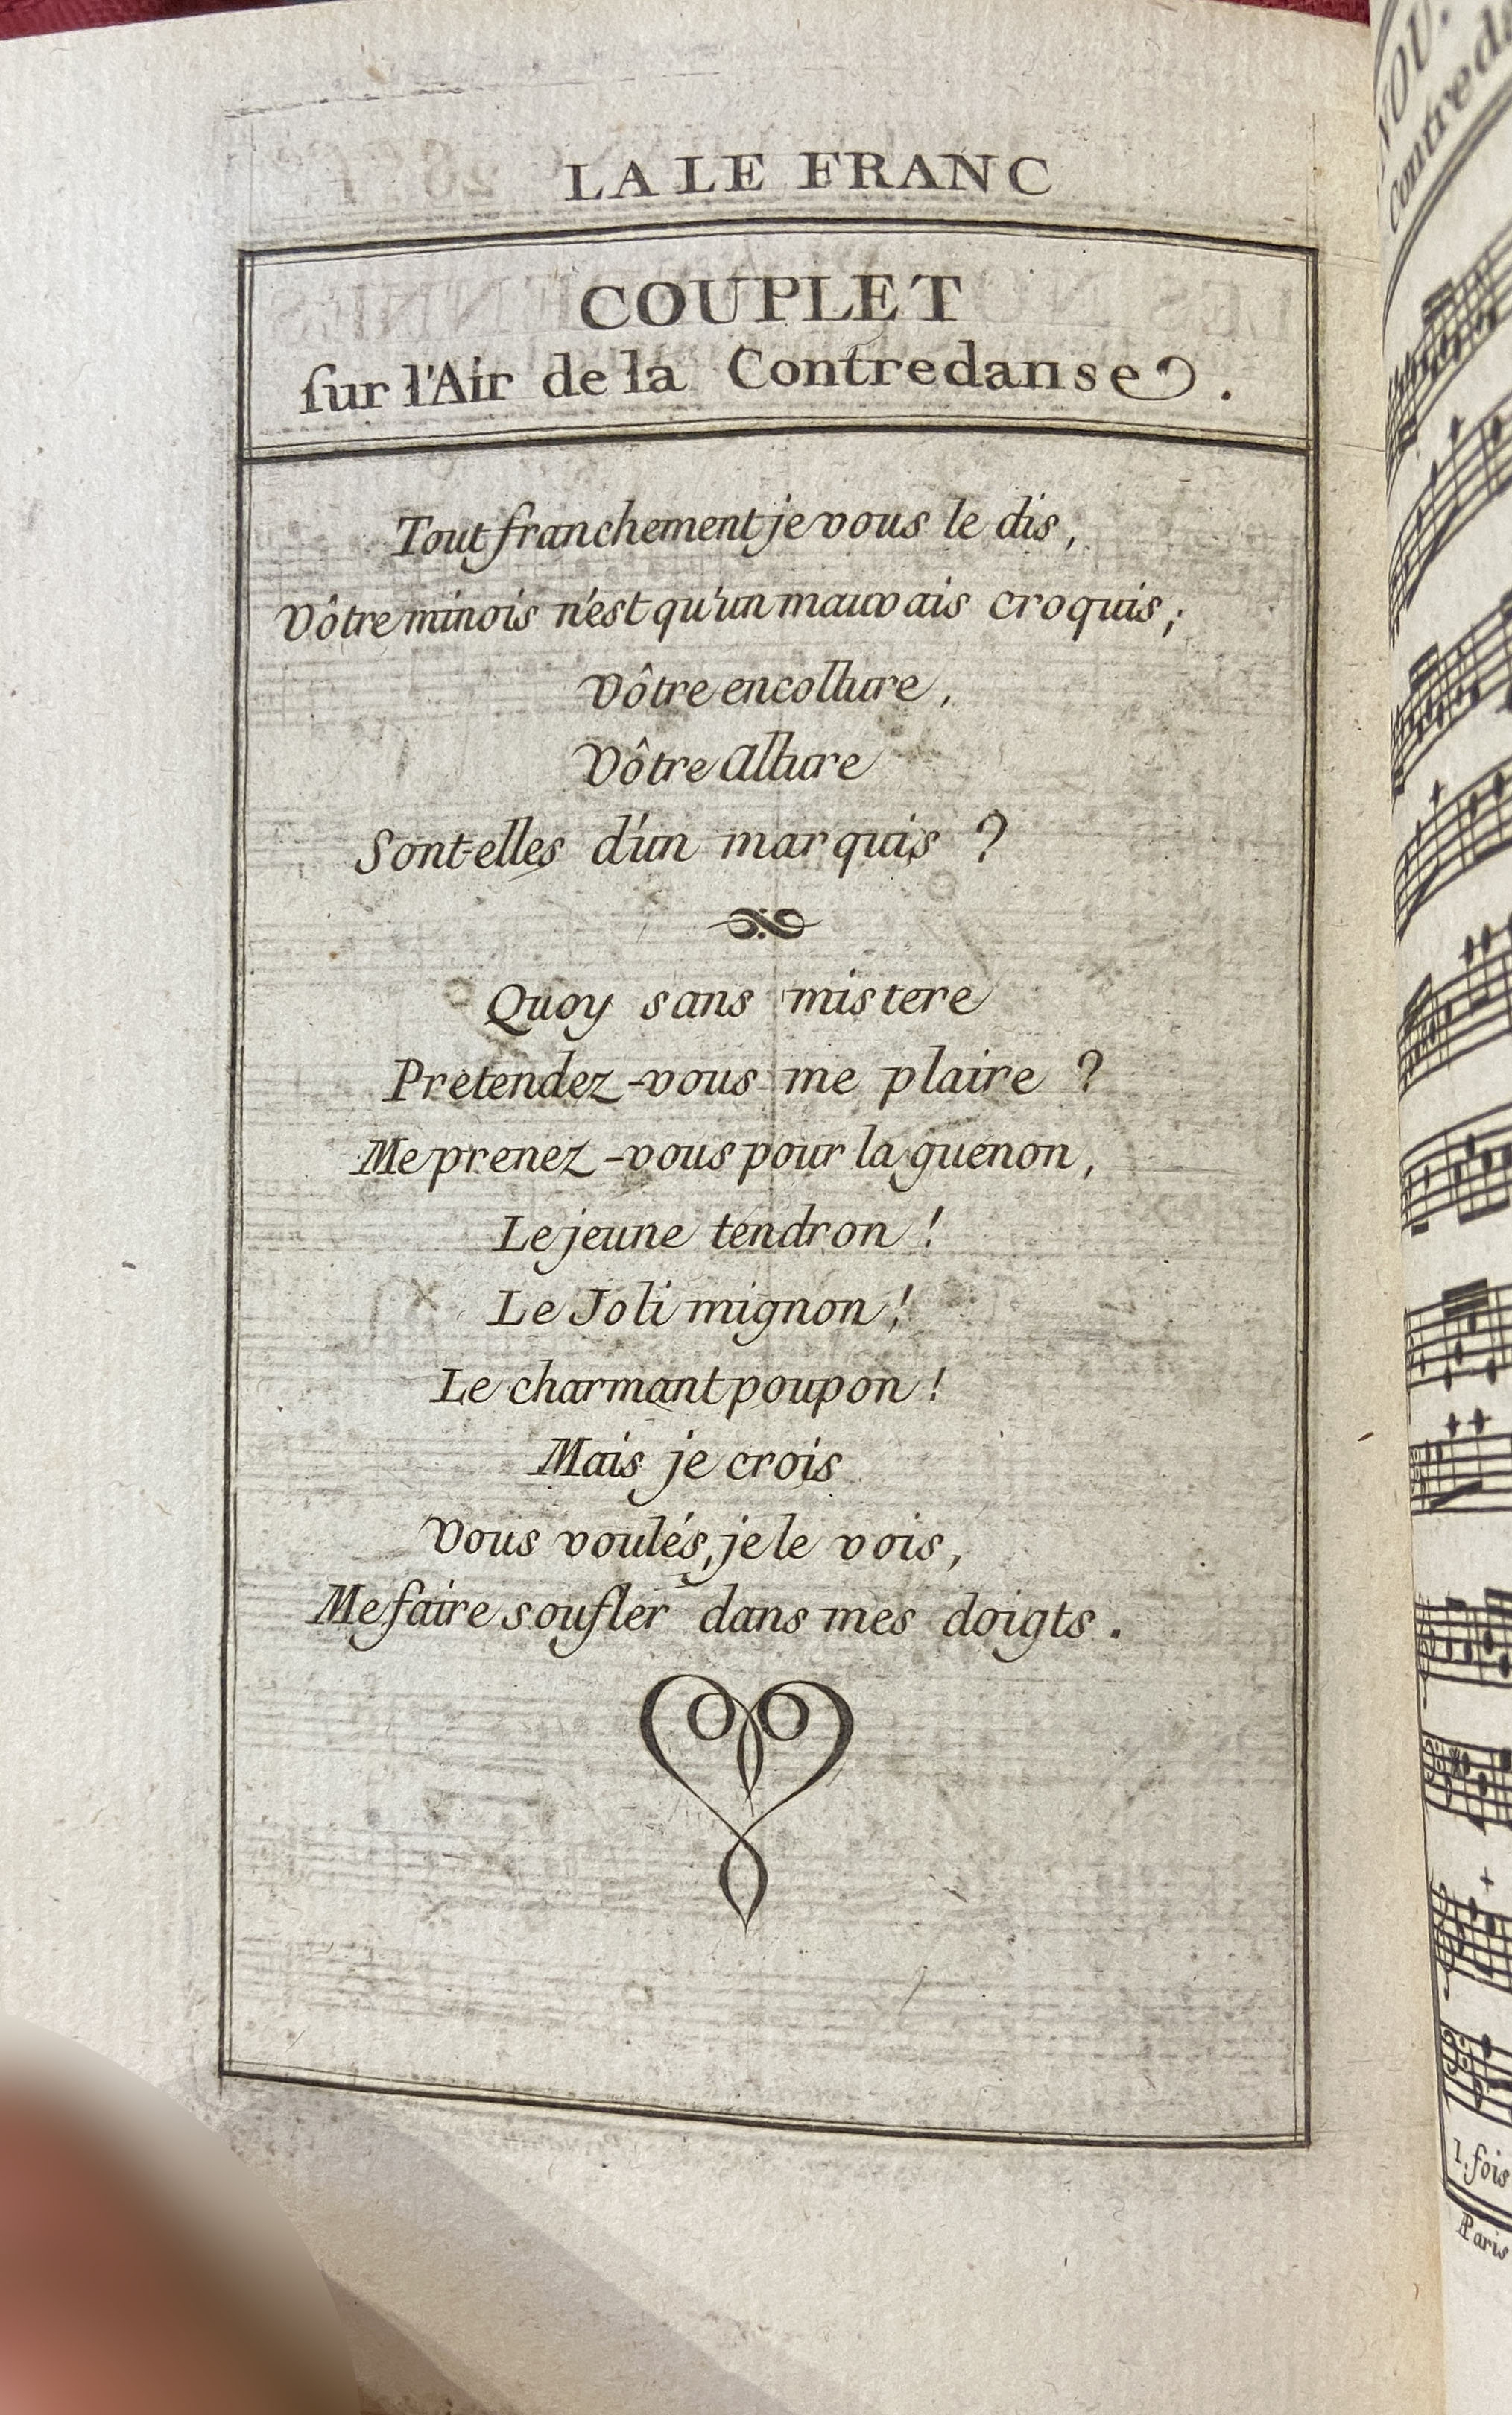 LA LE FRANC
COUPLET
sur l'Air de la Contredanse.
Tout franchement je vous le dis,
Vôtre minois n'est qu'un mauvais croquis;
Vôtre encollure,
Vôtre Allure
Sont-elles d'un marquis ?
Quoy sans mistere
Prétendez-vous me plaire ?
Me prenez-vous pour la guenon,
Le jeune tendron !
Le Joli mignon !
Le charmant poupon !
Mais je crois
Vous voulés, je le vois,
Me faire soufler dans mes doigts.
1. fois
Paris